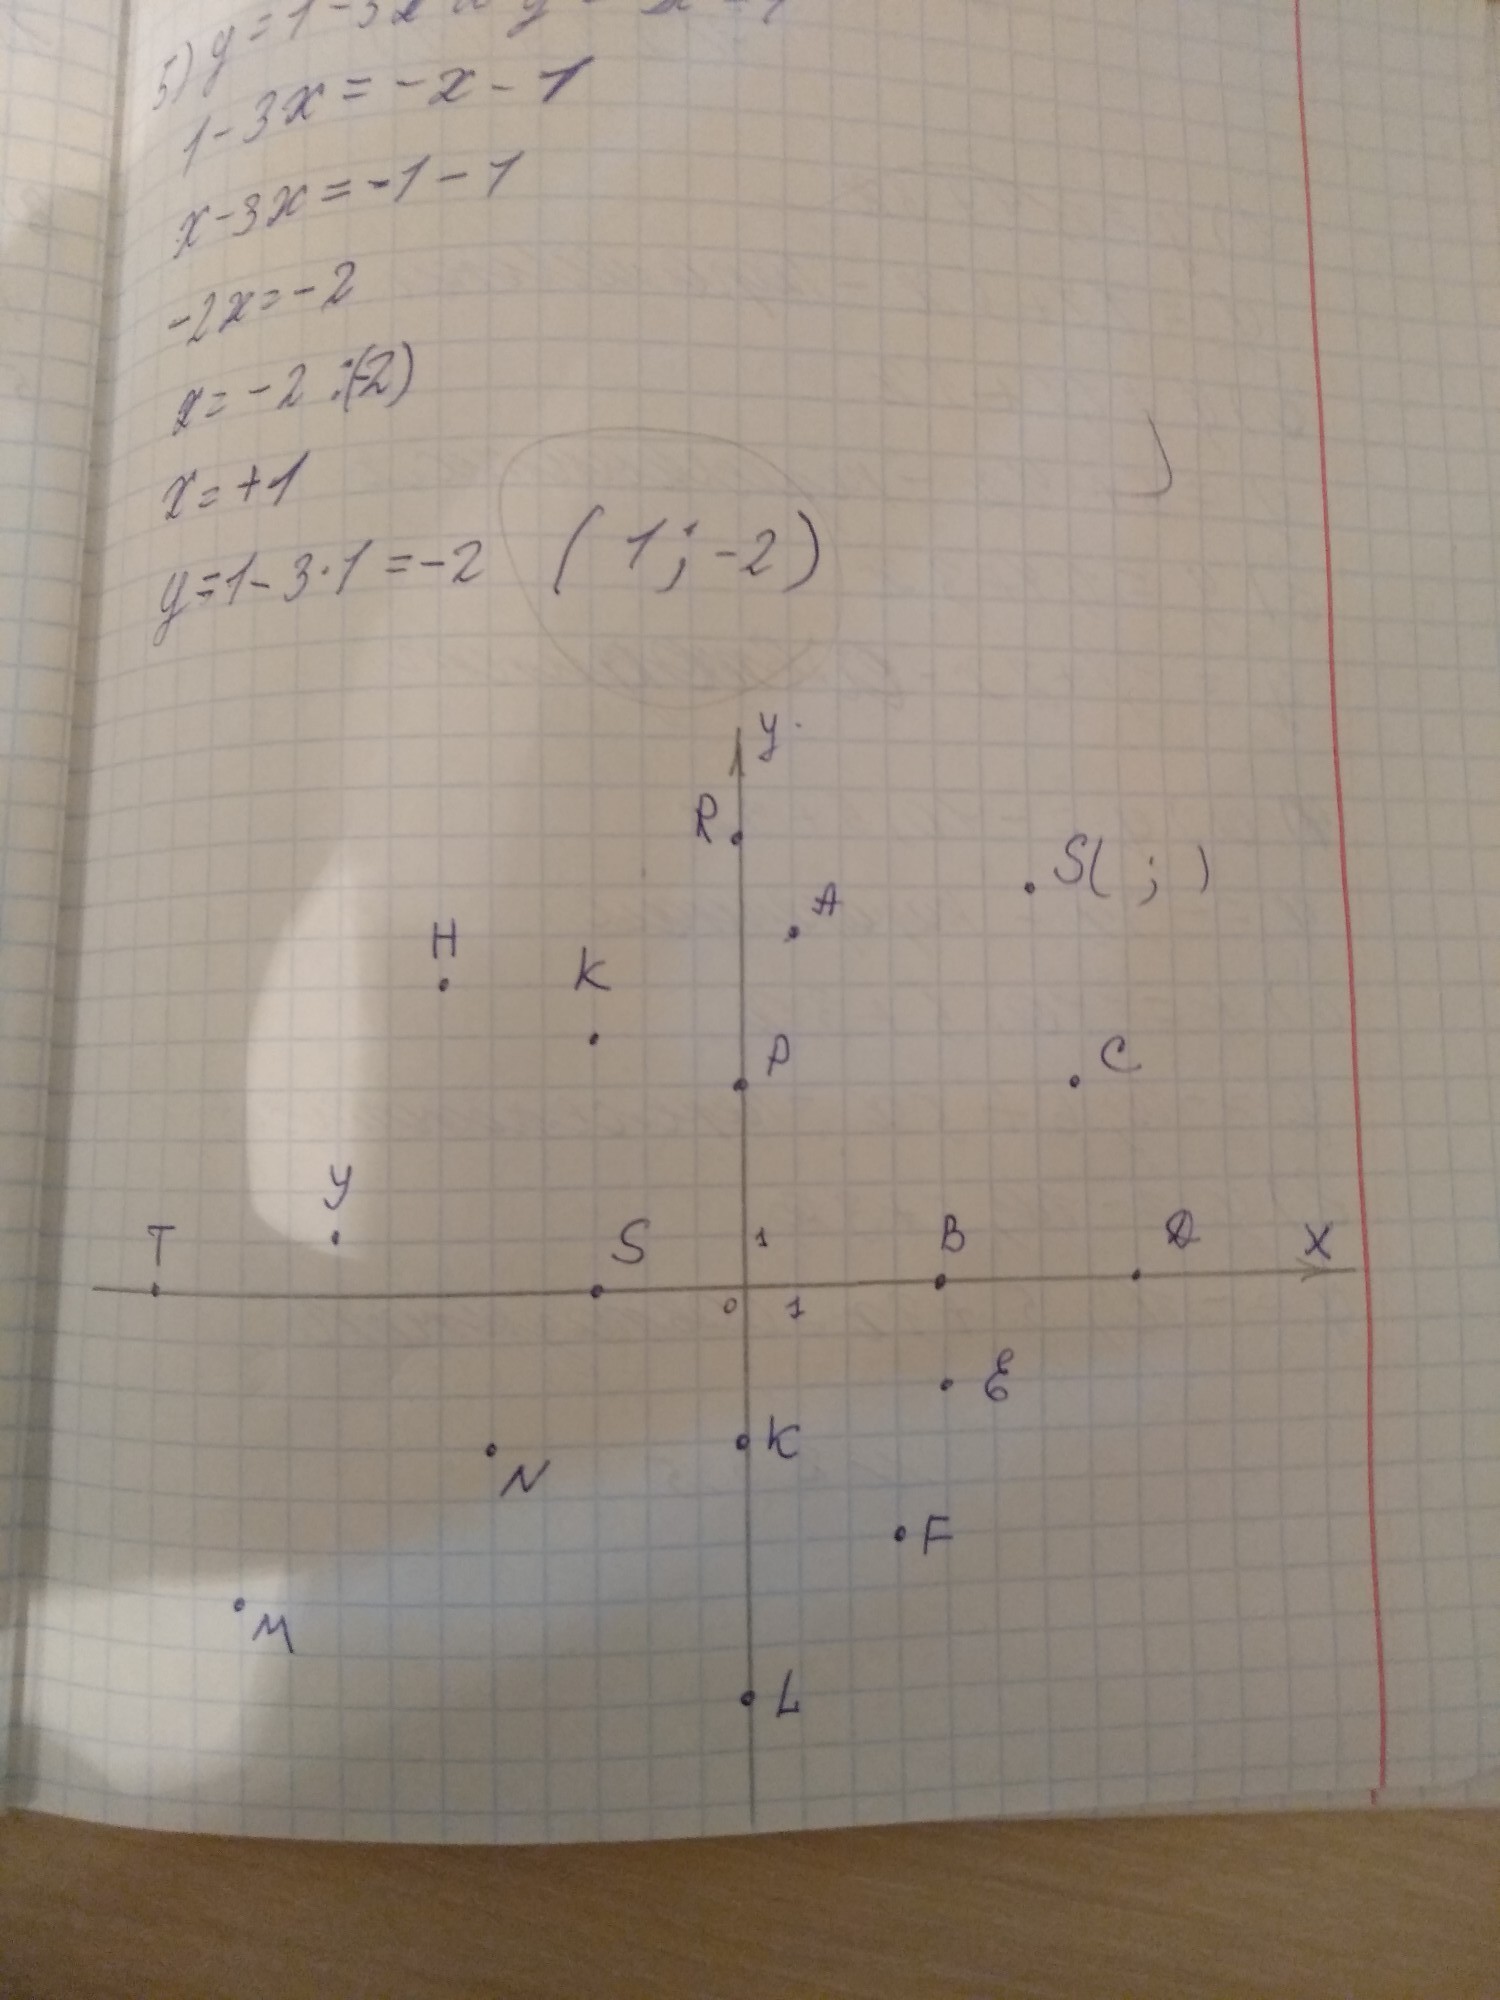 5) y=1-3x и y=-x-1
1-3x=-x-1
x-3x=-1-1
-2x=-2
x=-2:(-2)
x=+1
y=1-3·1=-2 (1;-2)
y
R
S( ; )
A
H
K
P
C
y
T
S
1
B
D
X
0
1
E
K
N
F
M
L